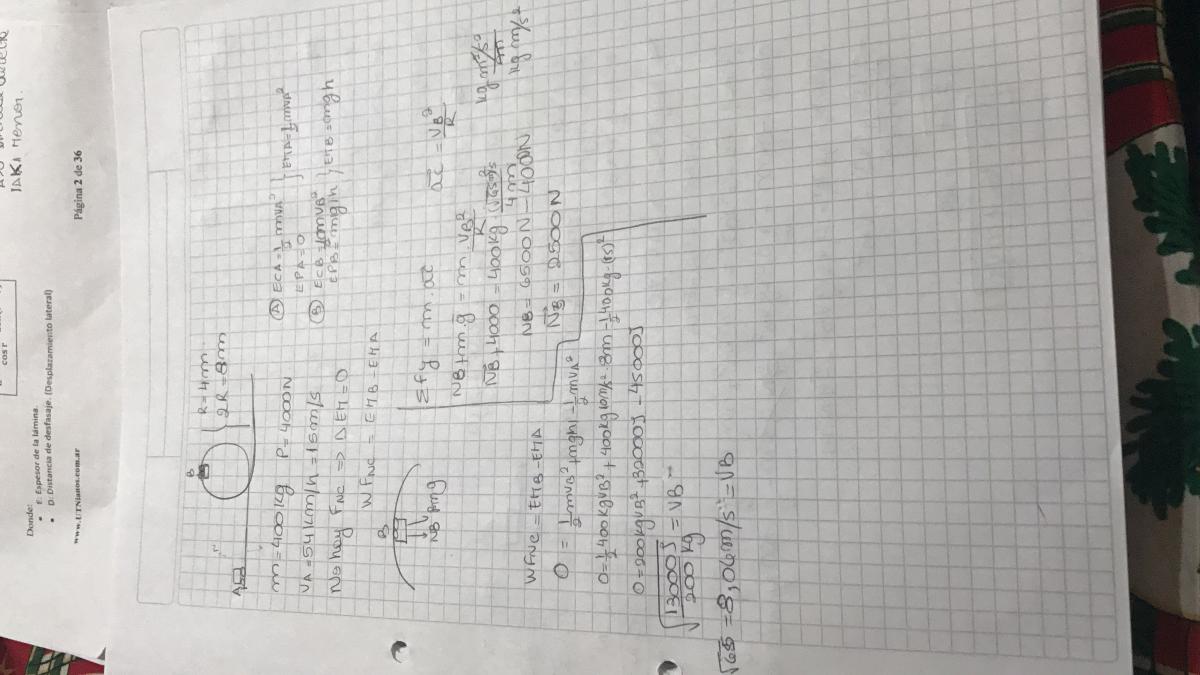 IAKA MENOR.
Página 2 de 36
cos r
Donde:
E: Espesor de la lámina.
D: Distancia de desfasaje. (Desplazamiento lateral)
www.UTNianos.com.ar
B
R=4m
2R=8m
A
m=400kg P=4000N
VA=54km/h=15m/s
No hay FNC => ΔEM=0
WFNC = EMB-EMA
A ECA=1/2 mVA²
EPA=0
EMA=1/2 mVA²
B ECB=1/2 mVB²
EPB=mgh
EMB=mgh
B
NB mg
ΣFy = m ac
ac = VB²/R
NB+m.g = m. VB²/R
NB+4000 = 400kg (√65m/s)²/4m
NB=6500N-4000N
NB=2500N
kg m²/s²/m
kg m/s²
WFNC=EMB-EMA
0 = 1/2 mVB²+mgh-1/2 mVA²
0=1/2 400kgVB²+400kg 10m/s² 8m-1/2 400kg.(15)²
0=200kgVB²+32000J-45000J
√13000J/200kg = VB
√65=8,06m/s=VB